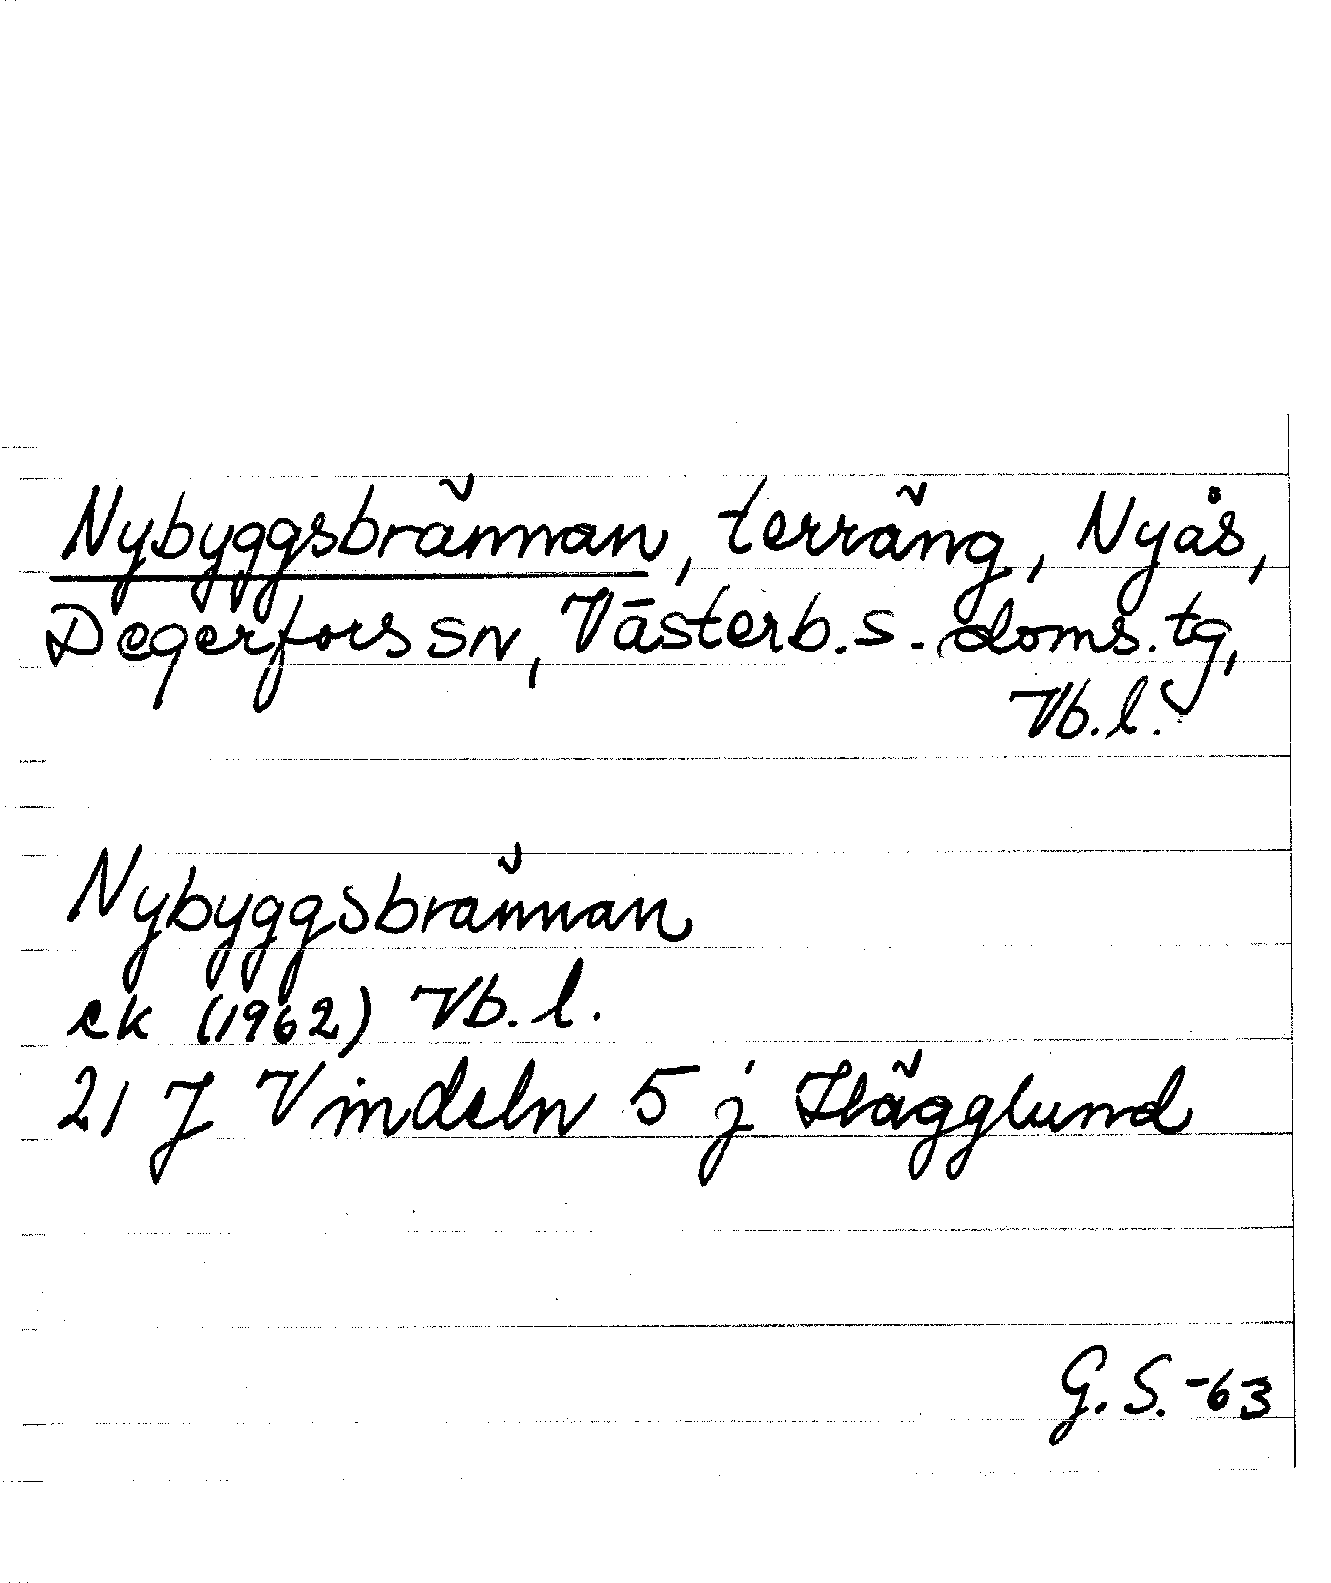 Nybyggsbrännan, terräng, Nyås,
Degerfors sn, Västerb. s. doms. tg,
Vb. l.
Nybyggsbrännan
ek (1962) Vb. l.
21 J Vindeln 5 j Hägglund
G. S. -63